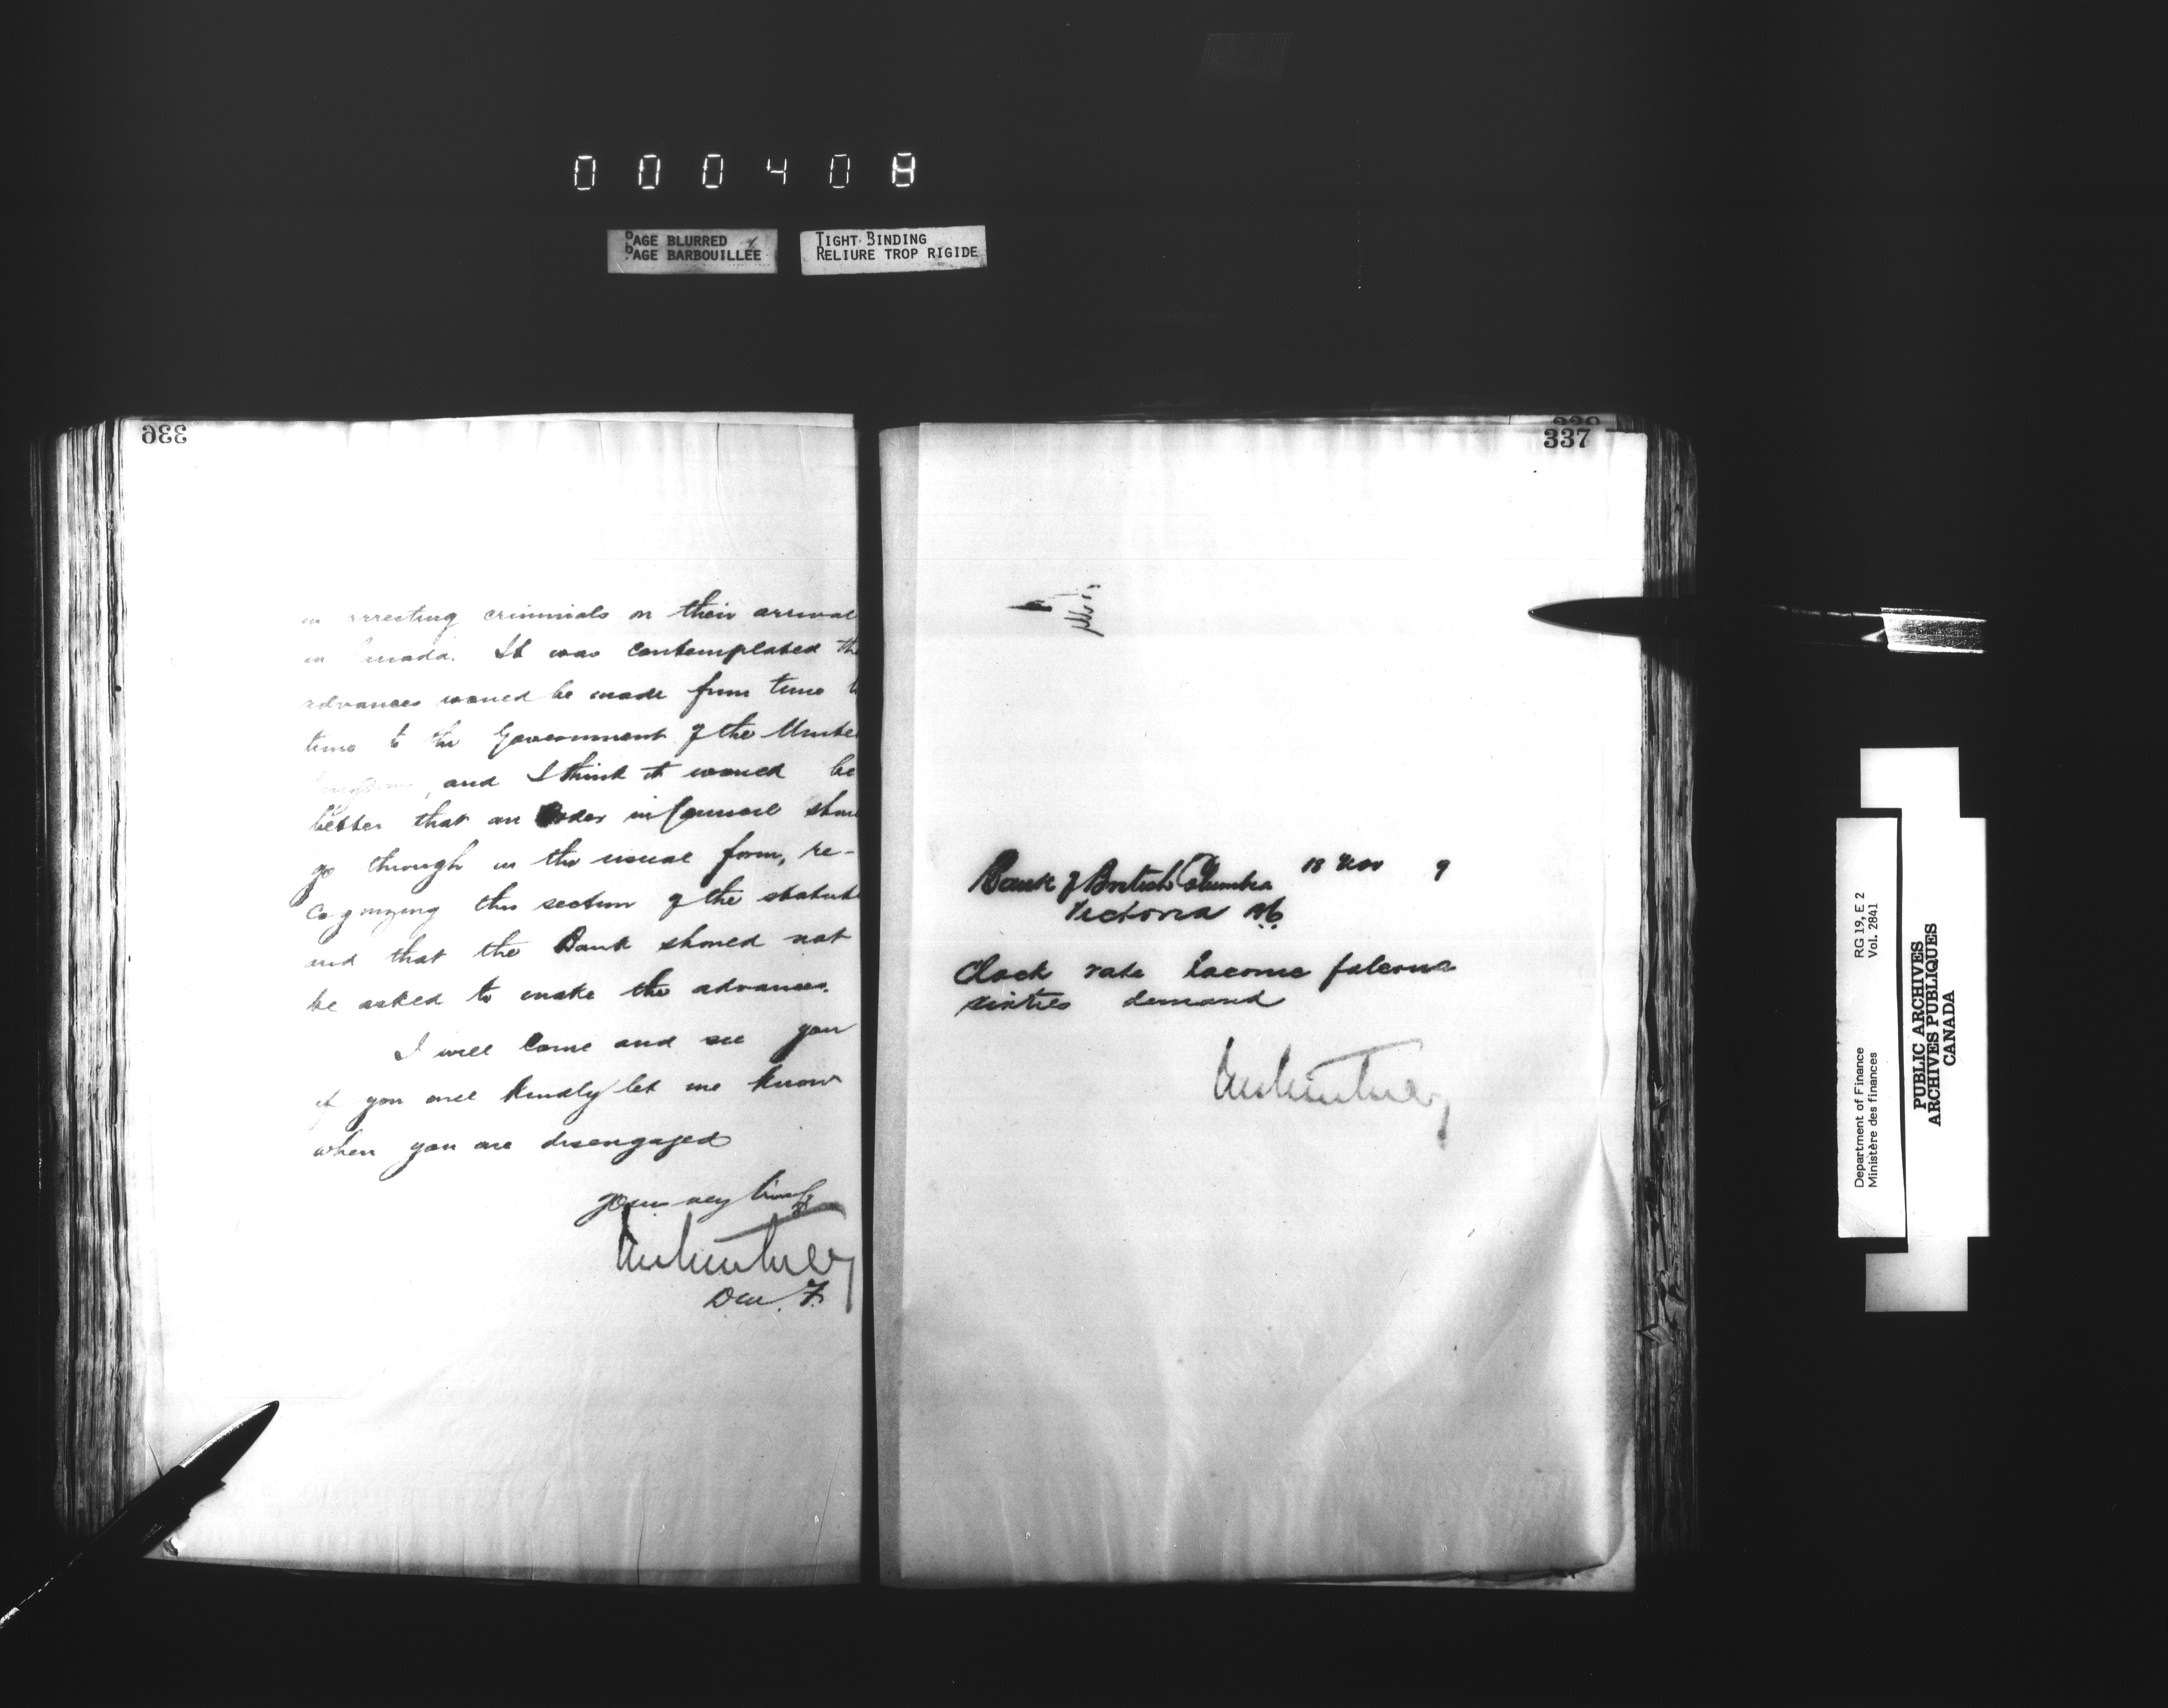 000408
PAGE BLURRED
PAGE BARBOUILLÉE
TIGHT BINDING
RELIURE TROP RIGIDE
336
in arresting criminals on their arrival
in Canada. It was contemplated th
advances would be made from time t
time to the Government of the Unite
and I think it would be
better that an Order in Council shou
go through in the usual form, re-
cognizing this section of the statute
and that the Bank should not
be asked to make the advances.
I will come and see you
if you will kindly let me know
when you are disengaged
Yours very truly
D.M.F.
337
Bank of British Columbia 18 Nov 9
Victoria BC
Clock rate
sixties demand
RG 19, E 2
Vol. 2841
Department of Finance
Ministère des finances
PUBLIC ARCHIVES
ARCHIVES PUBLIQUES
CANADA